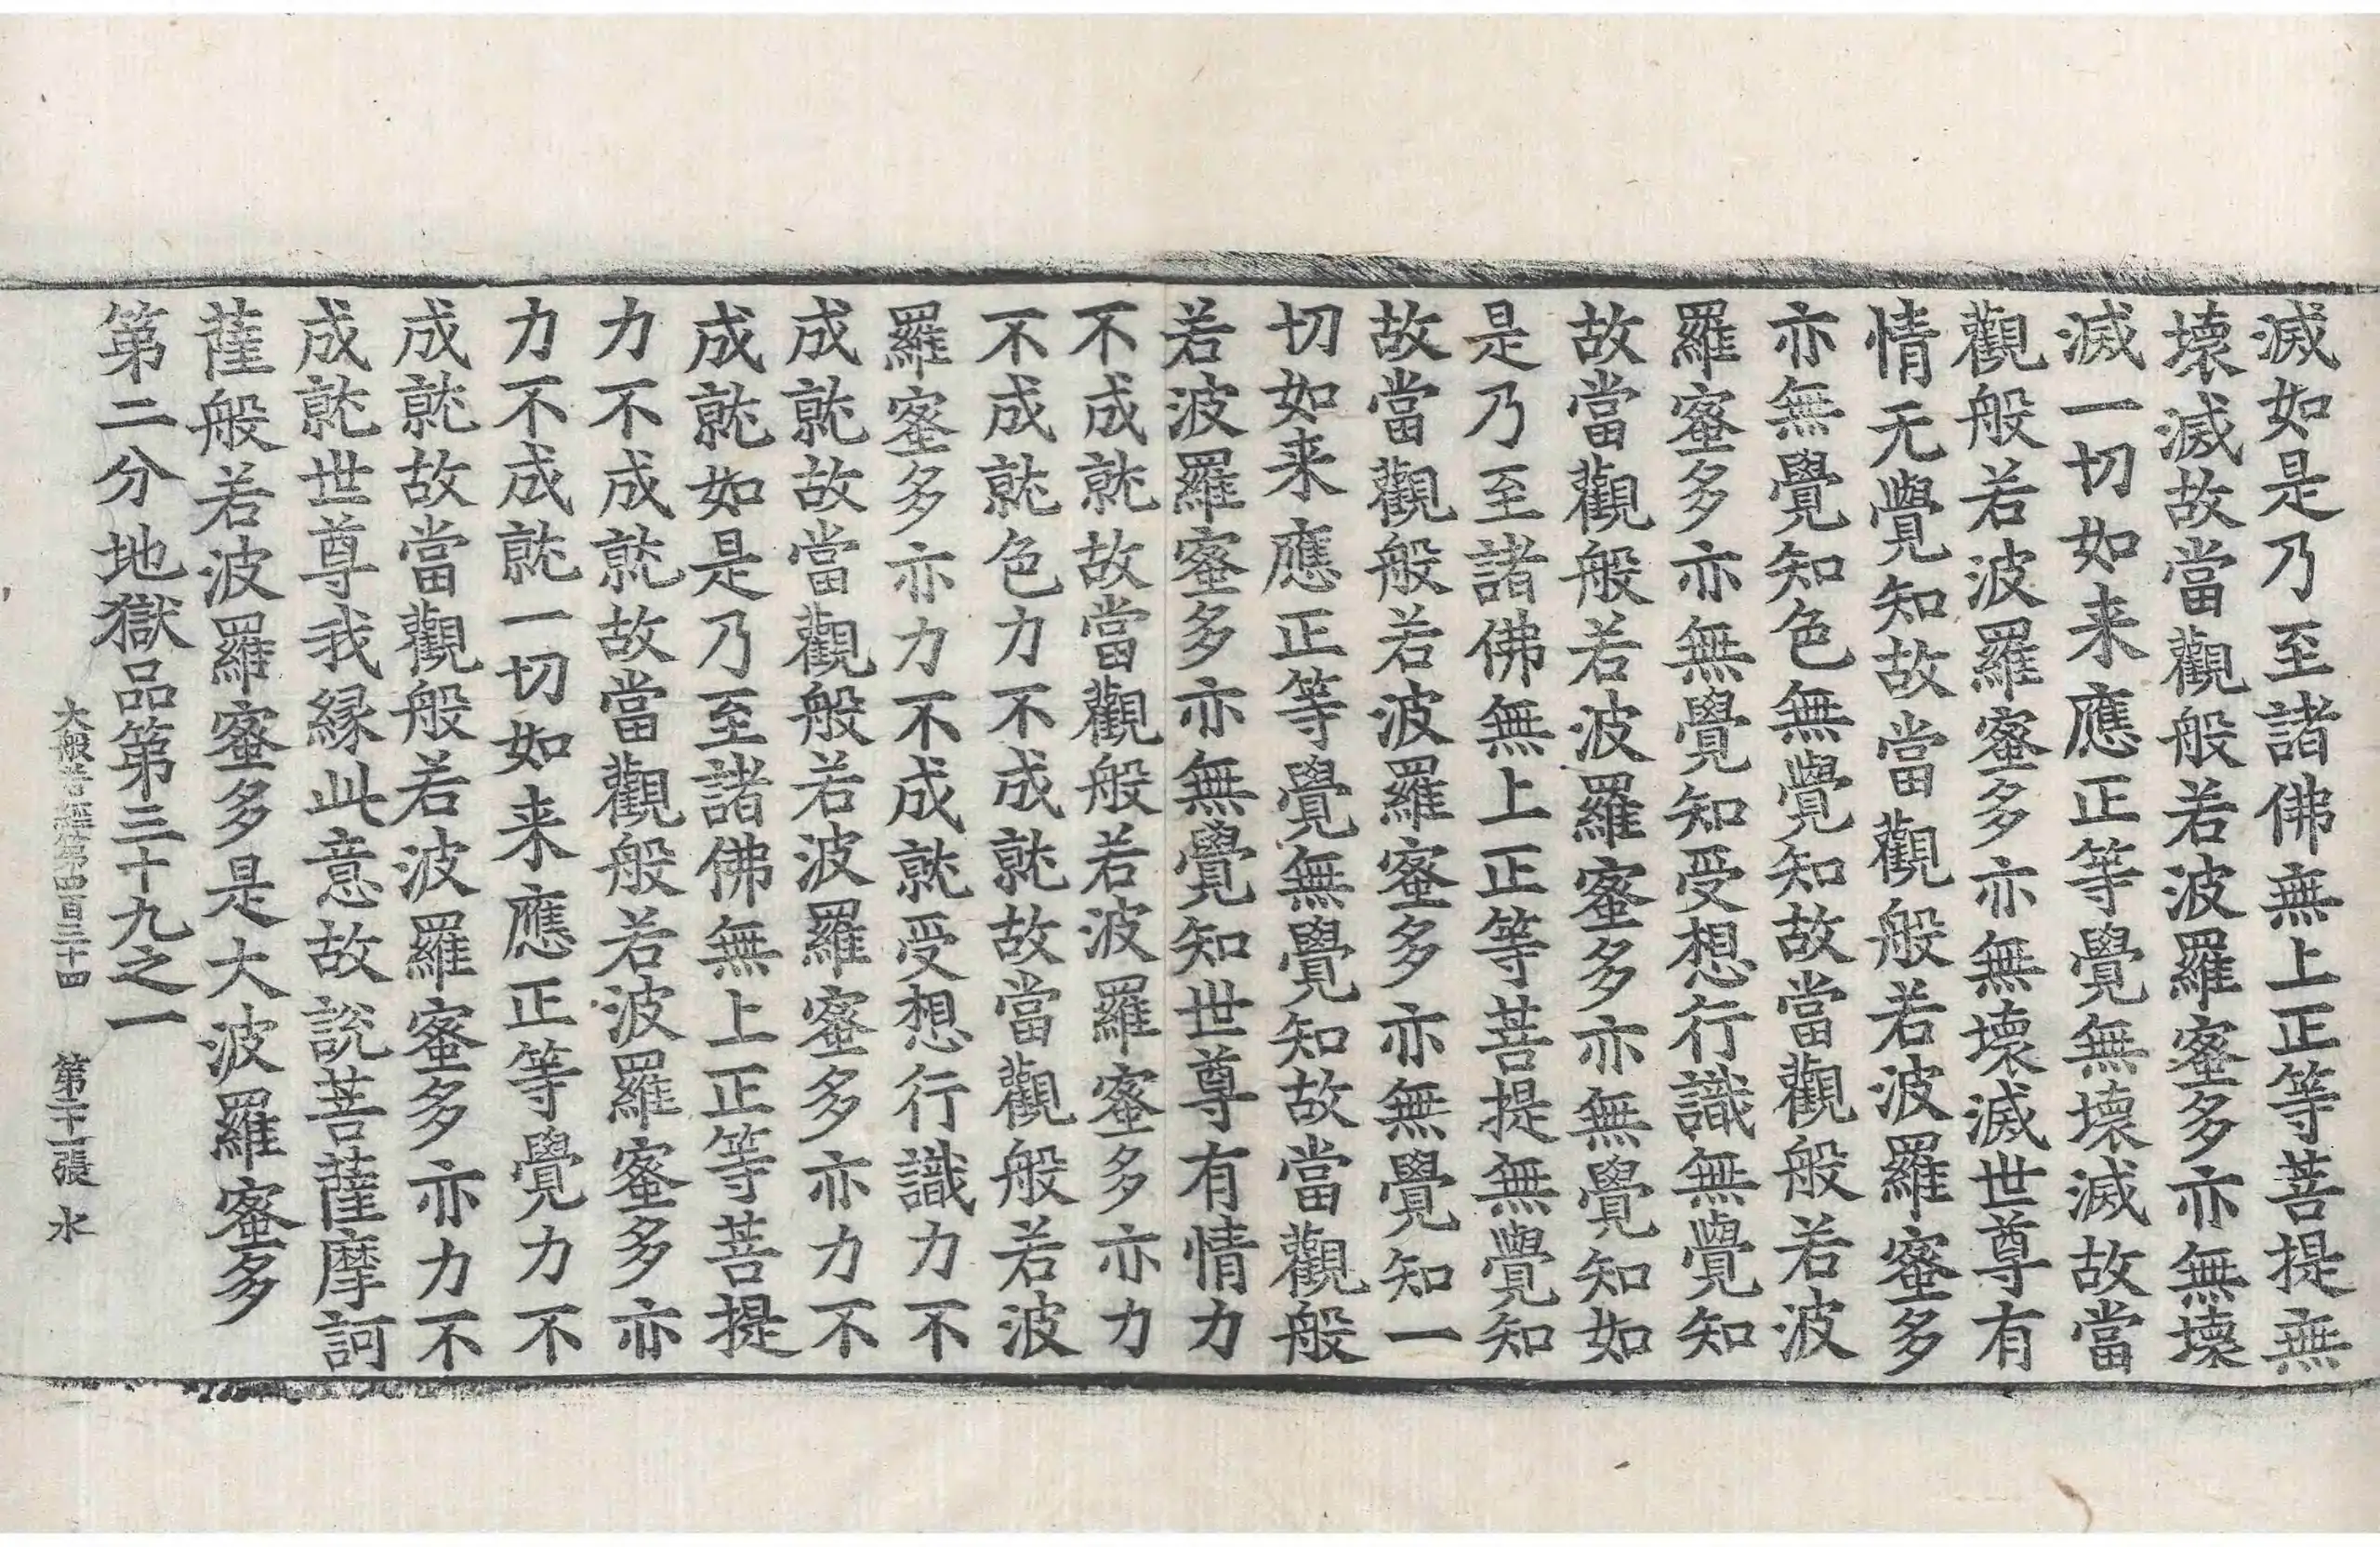 滅如是乃至諸佛無上正等菩提無
壊滅故當觀般若波羅蜜多亦無壊
滅一切如来應正等覺無壊滅故當
觀般若波羅蜜多亦無壊滅世尊有
情无覺知故當觀般若波羅蜜多
亦無覺知色無覺知故當觀般若波
羅蜜多亦無覺知受想行識無覺知
故當觀般若波羅蜜多亦無覺知如
是乃至諸佛無上正等菩提無覺知
故當觀般若波羅蜜多亦無覺知一
切如来應正等覺無覺知故當觀般
若波羅蜜多亦無覺知世尊有情力
不成就故當觀般若波羅蜜多亦力
不成就色力不成就故當觀般若波
羅蜜多亦力不成就受想行識力不
成就故當觀般若波羅蜜多亦力不
成就如是乃至諸佛無上正等菩提
力不成就故當觀般若波羅蜜多亦
力不成就一切如来應正等覺力不
成就故當觀般若波羅蜜多亦力不
成就世尊我縁此意故說菩薩摩訶
薩般若波羅蜜多是大波羅蜜多
第二分地獄品第三十九之一
大般若經第四百三十四 第二十一張 水